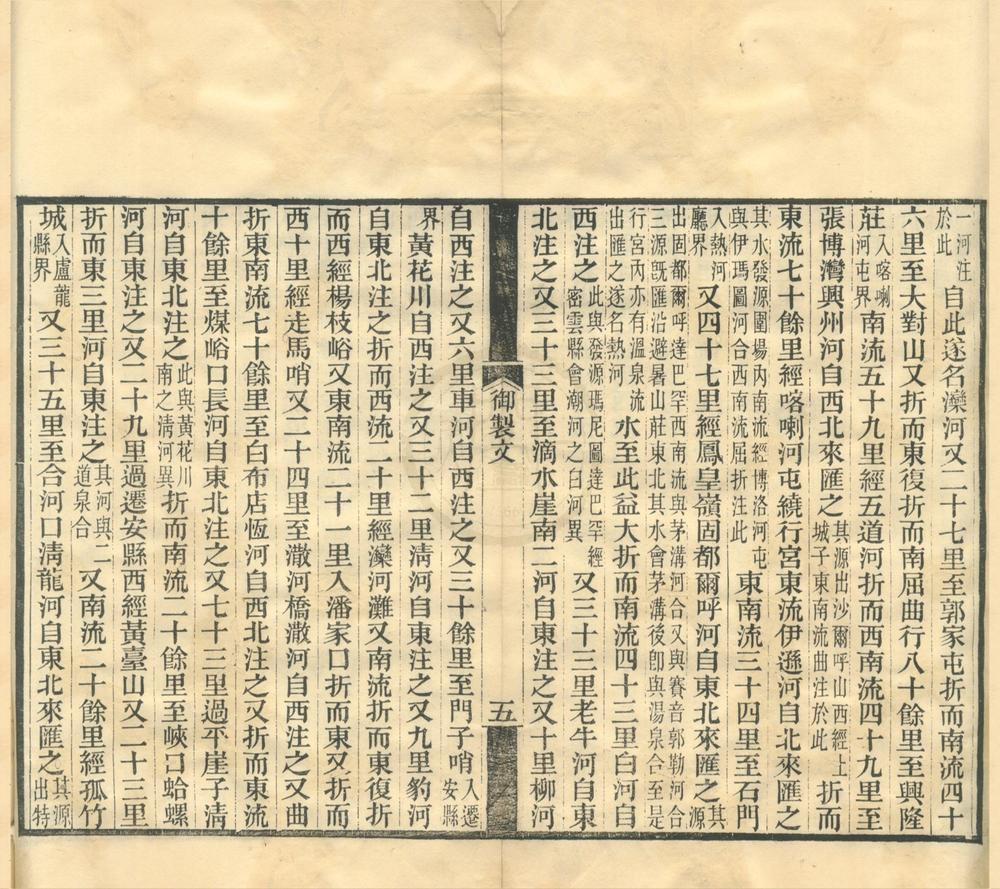 一河注於此自此遂名灤河又二十七里至郭家屯折而南流四十
六里至大對山又折而東復折而南屈曲行八十餘里至興隆
莊入喀喇河屯界南流五十九里經五道河折而西南流四十九里至
張博灣興州河自西北來匯之其源出沙爾呼山西經上城子東南流曲注於此折而
東流七十餘里經喀喇河屯繞行宮東流伊遜河自北來匯之
其水發源圍場內南流經博洛河屯與伊瑪圖河合西南流屈折注此東南流三十四里至石門
入熱河廳界又四十七里經鳳皇嶺固都爾呼河自東北來匯之其源
出固都爾呼達巴罕西南流與茅溝河合又與賽音郭勒河合三源旣匯沿避暑山莊東北其水會茅溝後卽與湯泉合至是
行宮內亦有溫泉流出匯之遂名熱河水至此益大折而南流四十三里白河自
西注之此與發源瑪尼圖達巴罕經密雲縣會潮河之白河異又三十三里老牛河自東
北注之又三十三里至滴水崖南二河自東注之又十里柳河
御製文
五
自西注之又六里車河自西注之又三十餘里至門子哨入遷安縣
界黃花川自西注之又三十二里淸河自東注之又九里豹河
自東北注之折而西流二十里經灤河灘又南流折而東復折
而西經楊枝峪又東南流二十一里入潘家口折而東又折而
西十里經走馬哨又二十四里至潵河橋潵河自西注之又曲
折東南流七十餘里至白布店恆河自西北注之又折而東流
十餘里至煤峪口長河自東北注之又七十三里過平崖子淸
河自東北注之此與黃花川南之淸河異折而南流二十餘里至峽口蛤螺
河自東注之又二十九里過遷安縣西經黃臺山又二十三里
折而東三里河自東注之其河與二道泉合又南流二十餘里經孤竹
城入盧龍縣界又三十五里至合河口淸龍河自東北來匯之其源出特